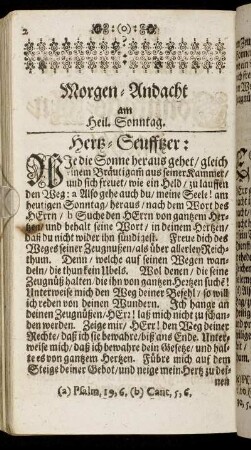 2 :(o):
Morgen-Andacht
am
Heil. Sonntag.
Hertz-Seufftzer:
WJe die Sonne heraus gehet/ gleich
einem Bräutigam aus seiner Kammer/
und sich freuet/ wie ein Held/ zu lauffen
den Weg: a Also gehe auch du/ meine Seele! am
heutigen Sonntag/ heraus/ nach dem Wort des
HErrn/ b Suche den HErrn von gantzem Her-
tzen/ und behalt seine Wort/ in deinem Hertzen/
daß du nicht wider ihn sündigest. Freue dich des
Weges seiner Zeugnüssen/ als über allerley Reich-
thum. Denn/ welche auf seinen Wegen wan-
deln/ die thun kein Ubels. Wol denen/ die seine
Zeugnüß halten/ die ihn von gantzen Hertzen suchē!
Unterweise mich den Weg deiner Befehl/ so will
ich reden von deinen Wundern. Jch hange an
deinen Zeugnüssen/ HErr! laß mich nicht zu schan-
den werden. Zeige mir/ HErr! den Weg deiner
Rechte/ daß ich sie bewahre/ biß ans Ende. Unter-
weise mich/ daß ich bewahre dein Gesetze/ und hal-
te es von gantzem Hertzen. Führe mich auf dem
Steige deiner Gebot/ und neige mein Hertz zu dei-
nen
(a) Psalm, 19, 6. (b) Cant, 5, 6.